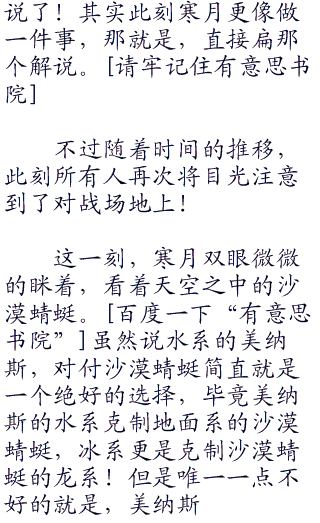 说了！其实此刻寒月更像做
一件事，那就是，直接扁那
个解说。[请牢记住有意思书
院]
不过随着时间的推移，
此刻所有人再次将目光注意
到了对战场地上！
这一刻，寒月双眼微微
的眯着，看着天空之中的沙
漠蜻蜓。[百度一下“有意思
书院”]虽然说水系的美纳
斯，对付沙漠蜻蜓简直就是
一个绝好的选择，毕竟美纳
斯的水系克制地面系的沙漠
蜻蜓，冰系更是克制沙漠蜻
蜓的龙系！但是唯一一点不
好的就是，美纳斯